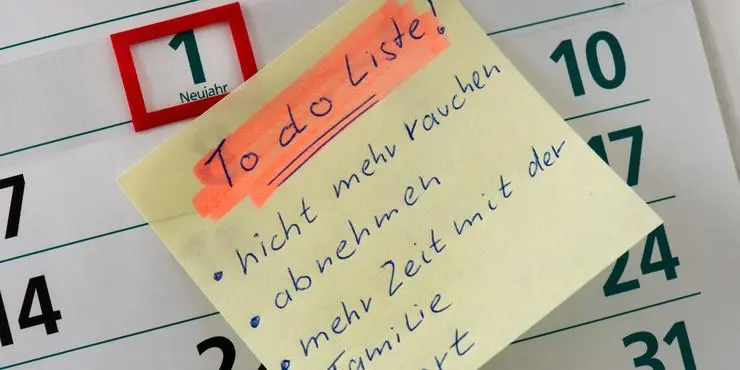 1
Neujahr
10
7
17
14
24
2
31
To do Liste!
• nicht mehr rauchen
• abnehmen
• mehr Zeit mit der
Familie